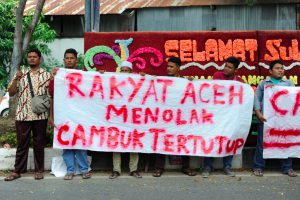 SELAMAT SU
RAKYAT ACEH
MENOLAK
CAMBUK TERTUTUP
CA